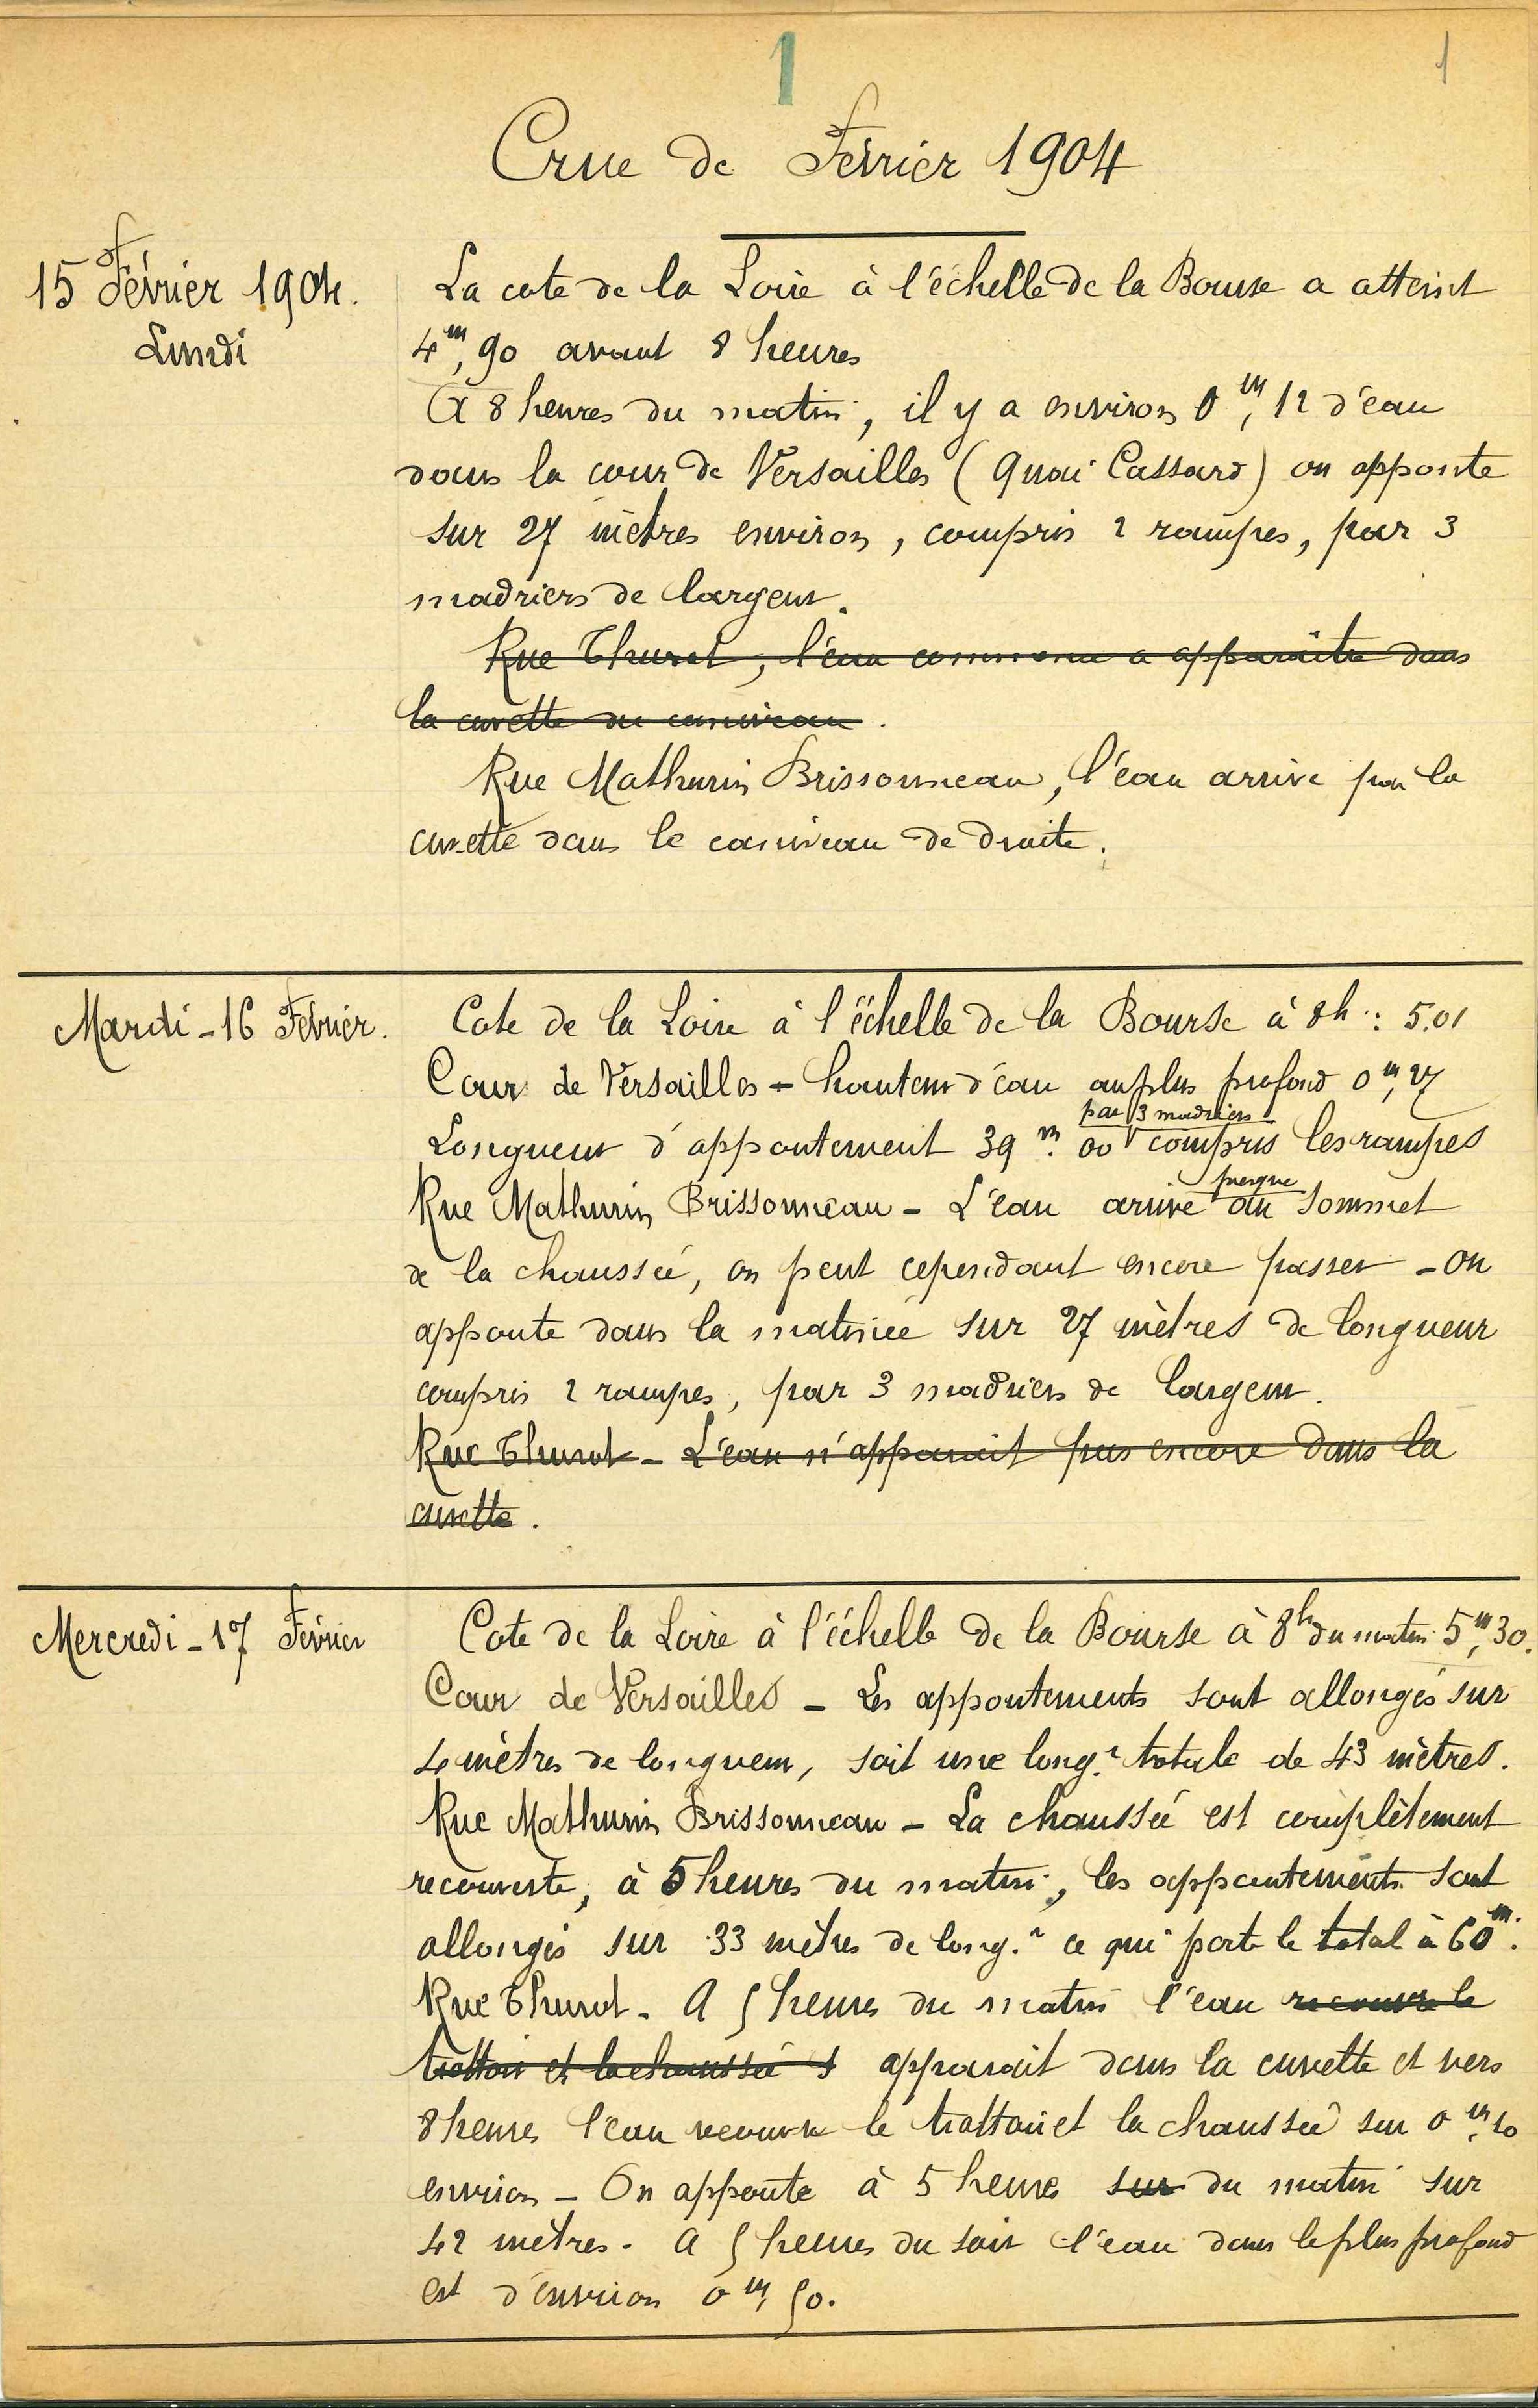 1
1
Crue de Février 1904
15 Février 1904.
Lundi
La cote de la Loire à l'échelle de la Bourse a atteint
4m,90 avant 8 heures
A 8 heures du matin, il y a environ 0m,12 d'eau
dans la cour de Versailles (Quai Cassard) on apponte
sur 27 mètres environ, compris 2 rampes, par 3
madriers de largeur.
Rue Thurot, l'eau commence a apparaître dans
la cuvette du caniveau.
Rue Mathurin Brissonneau, l'eau arrive par la
cuvette dans le caniveau de droite.
Mardi - 16 Février.
Cote de la Loire à l'échelle de la Bourse à 8h : 5.01
Cour de Versailles - hauteur d'eau au plus profond 0m,27
par 3 madriers
Longueur d'appontement 39m.00 compris les rampes
presque
Rue Mathurin Brissonneau - L'eau arrive au sommet
de la chaussée, on peut cependant encore passer - On
apponte dans la matinée sur 27 mètres de longueur
compris 2 rampes, par 3 madriers de largeur.
Rue Thurot - L'eau n'apparait pas encore dans la
cuvette.
Mercredi - 17 Février
Cote de la Loire à l'échelle de la Bourse à 8h du matin 5m,30.
Cour de Versailles - Les appontements sont allongés sur
4 mètres de longueur, soit une long.r totale de 43 mètres.
Rue Mathurin Brissonneau - La chaussée est complètement
recouverte, à 5 heures du matin, les appontements sont
allongés sur 33 mètres de long.r ce qui porte le total à 60m.
Rue Thurot - A 5 heures du matin l'eau recouvre le
trottoir et la chaussée apparait dans la cuvette et vers
8 heures l'eau recouvre le trottoir et la chaussée sur 0m,10
environ - On apponte à 5 heures sur du matin sur
42 mètres. A 5 heures du soir l'eau dans le plus profond
est d'environ 0m,50.